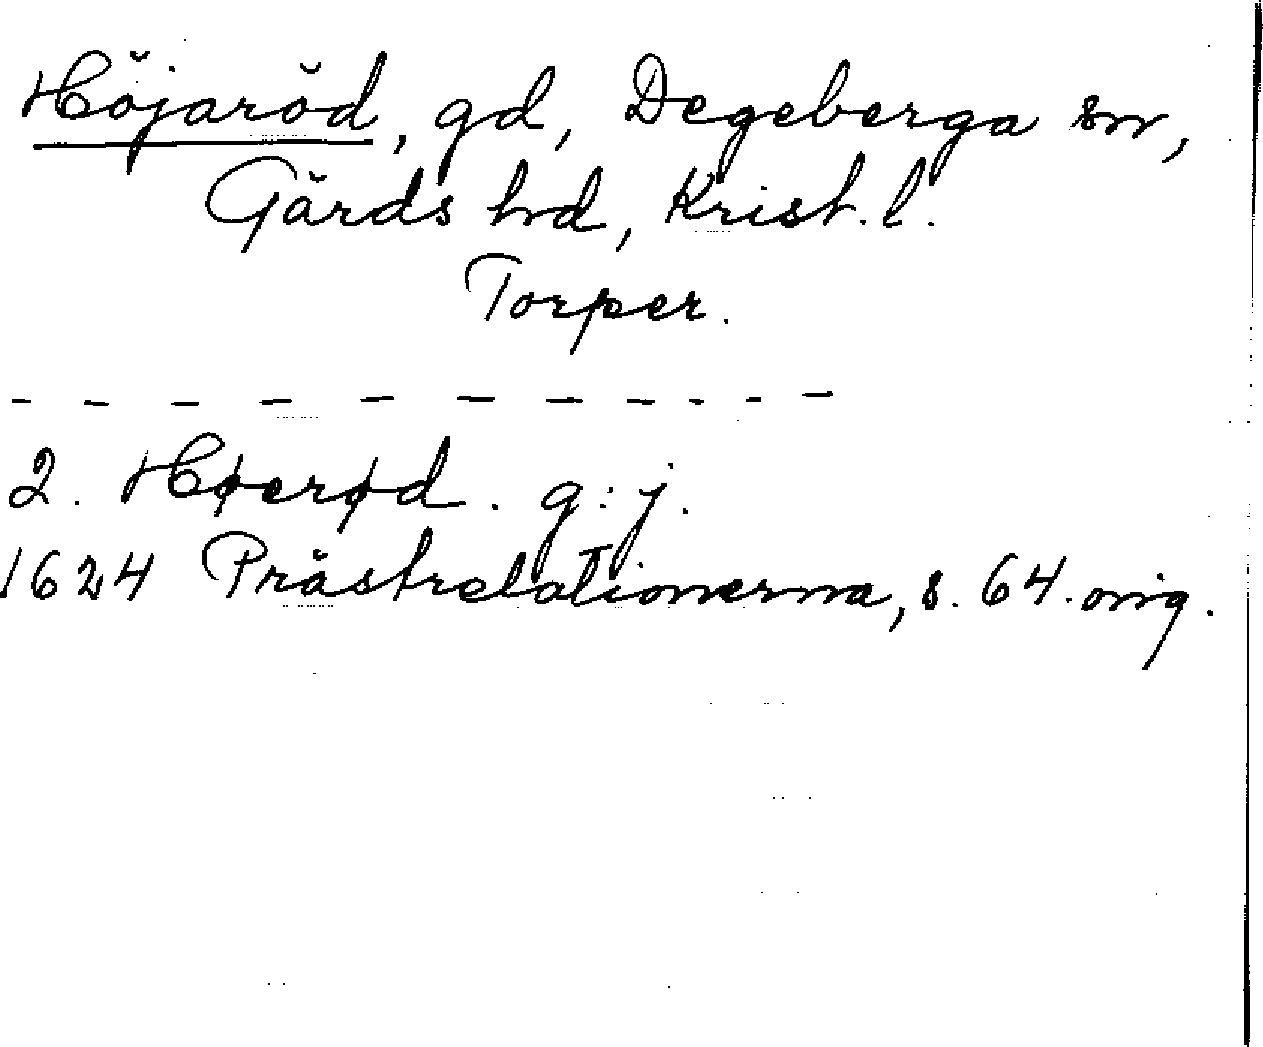 Höjaröd, gd, Degeberga sn,
Gärds hd, Krist. l.
Torper.
- - - - - - - - - - -
2. Høerød. g:j.
1624 Prästrelationerna, s. 64. orig.